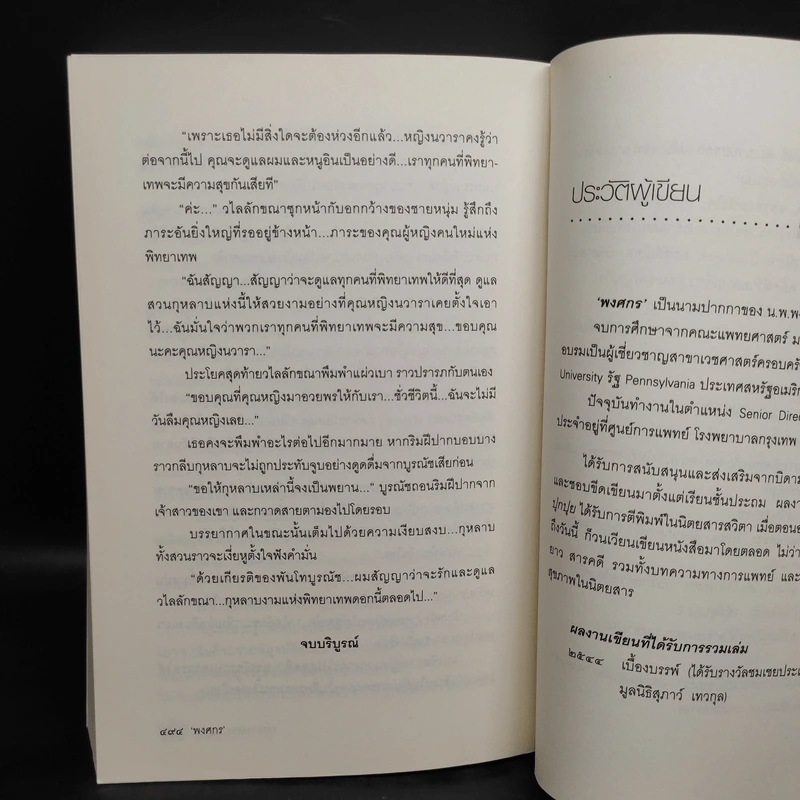 “เพราะเธอไม่มีสิ่งใดจะต้องห่วงอีกแล้ว...หญิงนวาราคงรู้ว่า
ต่อจากนี้ไป คุณจะดูแลผมและหนูอินเป็นอย่างดี...เราทุกคนที่พิทยา-
เทพจะมีความสุขกันเสียที”
“ค่ะ...” วไลลักขณาซุกหน้ากับอกกว้างของชายหนุ่ม รู้สึกถึง
ภาระอันยิ่งใหญ่ที่รออยู่ข้างหน้า...ภาระของคุณผู้หญิงคนใหม่แห่ง
พิทยาเทพ
“ฉันสัญญา...สัญญาว่าจะดูแลทุกคนที่พิทยาเทพให้ดีที่สุด ดูแล
สวนกุหลาบแห่งนี้ให้สวยงามอย่างที่คุณหญิงนวาราเคยตั้งใจเอา
ไว้...ฉันมั่นใจว่าพวกเราทุกคนที่พิทยาเทพจะมีความสุข...ขอบคุณ
นะคะคุณหญิงนวารา...”
ประโยคสุดท้ายวไลลักขณาพึมพำแผ่วเบา ราวปรารภกับตนเอง
“ขอบคุณที่คุณหญิงมาอวยพรให้กับเรา...ชั่วชีวิตนี้...ฉันจะไม่มี
วันลืมคุณหญิงเลย...”
เธอคงจะพึมพำอะไรต่อไปอีกมากมาย หากริมฝีปากบอบบาง
ราวกลีบกุหลาบจะไม่ถูกประทับจูบอย่างดูดดื่มจากบูรณัชเสียก่อน
“ขอให้กุหลาบเหล่านี้จงเป็นพยาน...” บูรณัชถอนริมฝีปากจาก
เจ้าสาวของเขา และกวาดสายตามองไปโดยรอบ
บรรยากาศในขณะนั้นเต็มไปด้วยความเงียบสงบ...กุหลาบ
ทั้งสวนราวจะเงี่ยหูตั้งใจฟังคำมั่น
“ด้วยเกียรติของพันโทบูรณัช...ผมสัญญาว่าจะรักและดูแล
วไลลักขณา...กุหลาบงามแห่งพิทยาเทพดอกนี้ตลอดไป...”
จบบริบูรณ์
๔๙๔ ‘พงศกร’
ประวัติผู้เขียน
‘พงศกร’ เป็นนามปากกาของ น.พ.พง
จบการศึกษาจากคณะแพทยศาสตร์ ม
อบรมเป็นผู้เชี่ยวชาญสาขาเวชศาสตร์ครอบครั
University รัฐ Pennsylvania ประเทศสหรัฐอเมริก
ปัจจุบันทำงานในตำแหน่ง Senior Direc
ประจำอยู่ที่ศูนย์การแพทย์ โรงพยาบาลกรุงเทพ
ได้รับการสนับสนุนและส่งเสริมจากบิดาม
และชอบขีดเขียนมาตั้งแต่เรียนชั้นประถม ผลงา
ปุกปุย ได้รับการตีพิมพ์ในนิตยสารสวิตา เมื่อตอนอ
ถึงวันนี้ ก็วนเวียนเขียนหนังสือมาโดยตลอด ไม่ว่า
ยาว สารคดี รวมทั้งบทความทางการแพทย์ และ
สุขภาพในนิตยสาร
ผลงานเขียนที่ได้รับการรวมเล่ม
๒๕๔๔ เบื้องบรรพ์ (ได้รับรางวัลชมเชยประเ
มูลนิธิสุภาว์ เทวกุล)